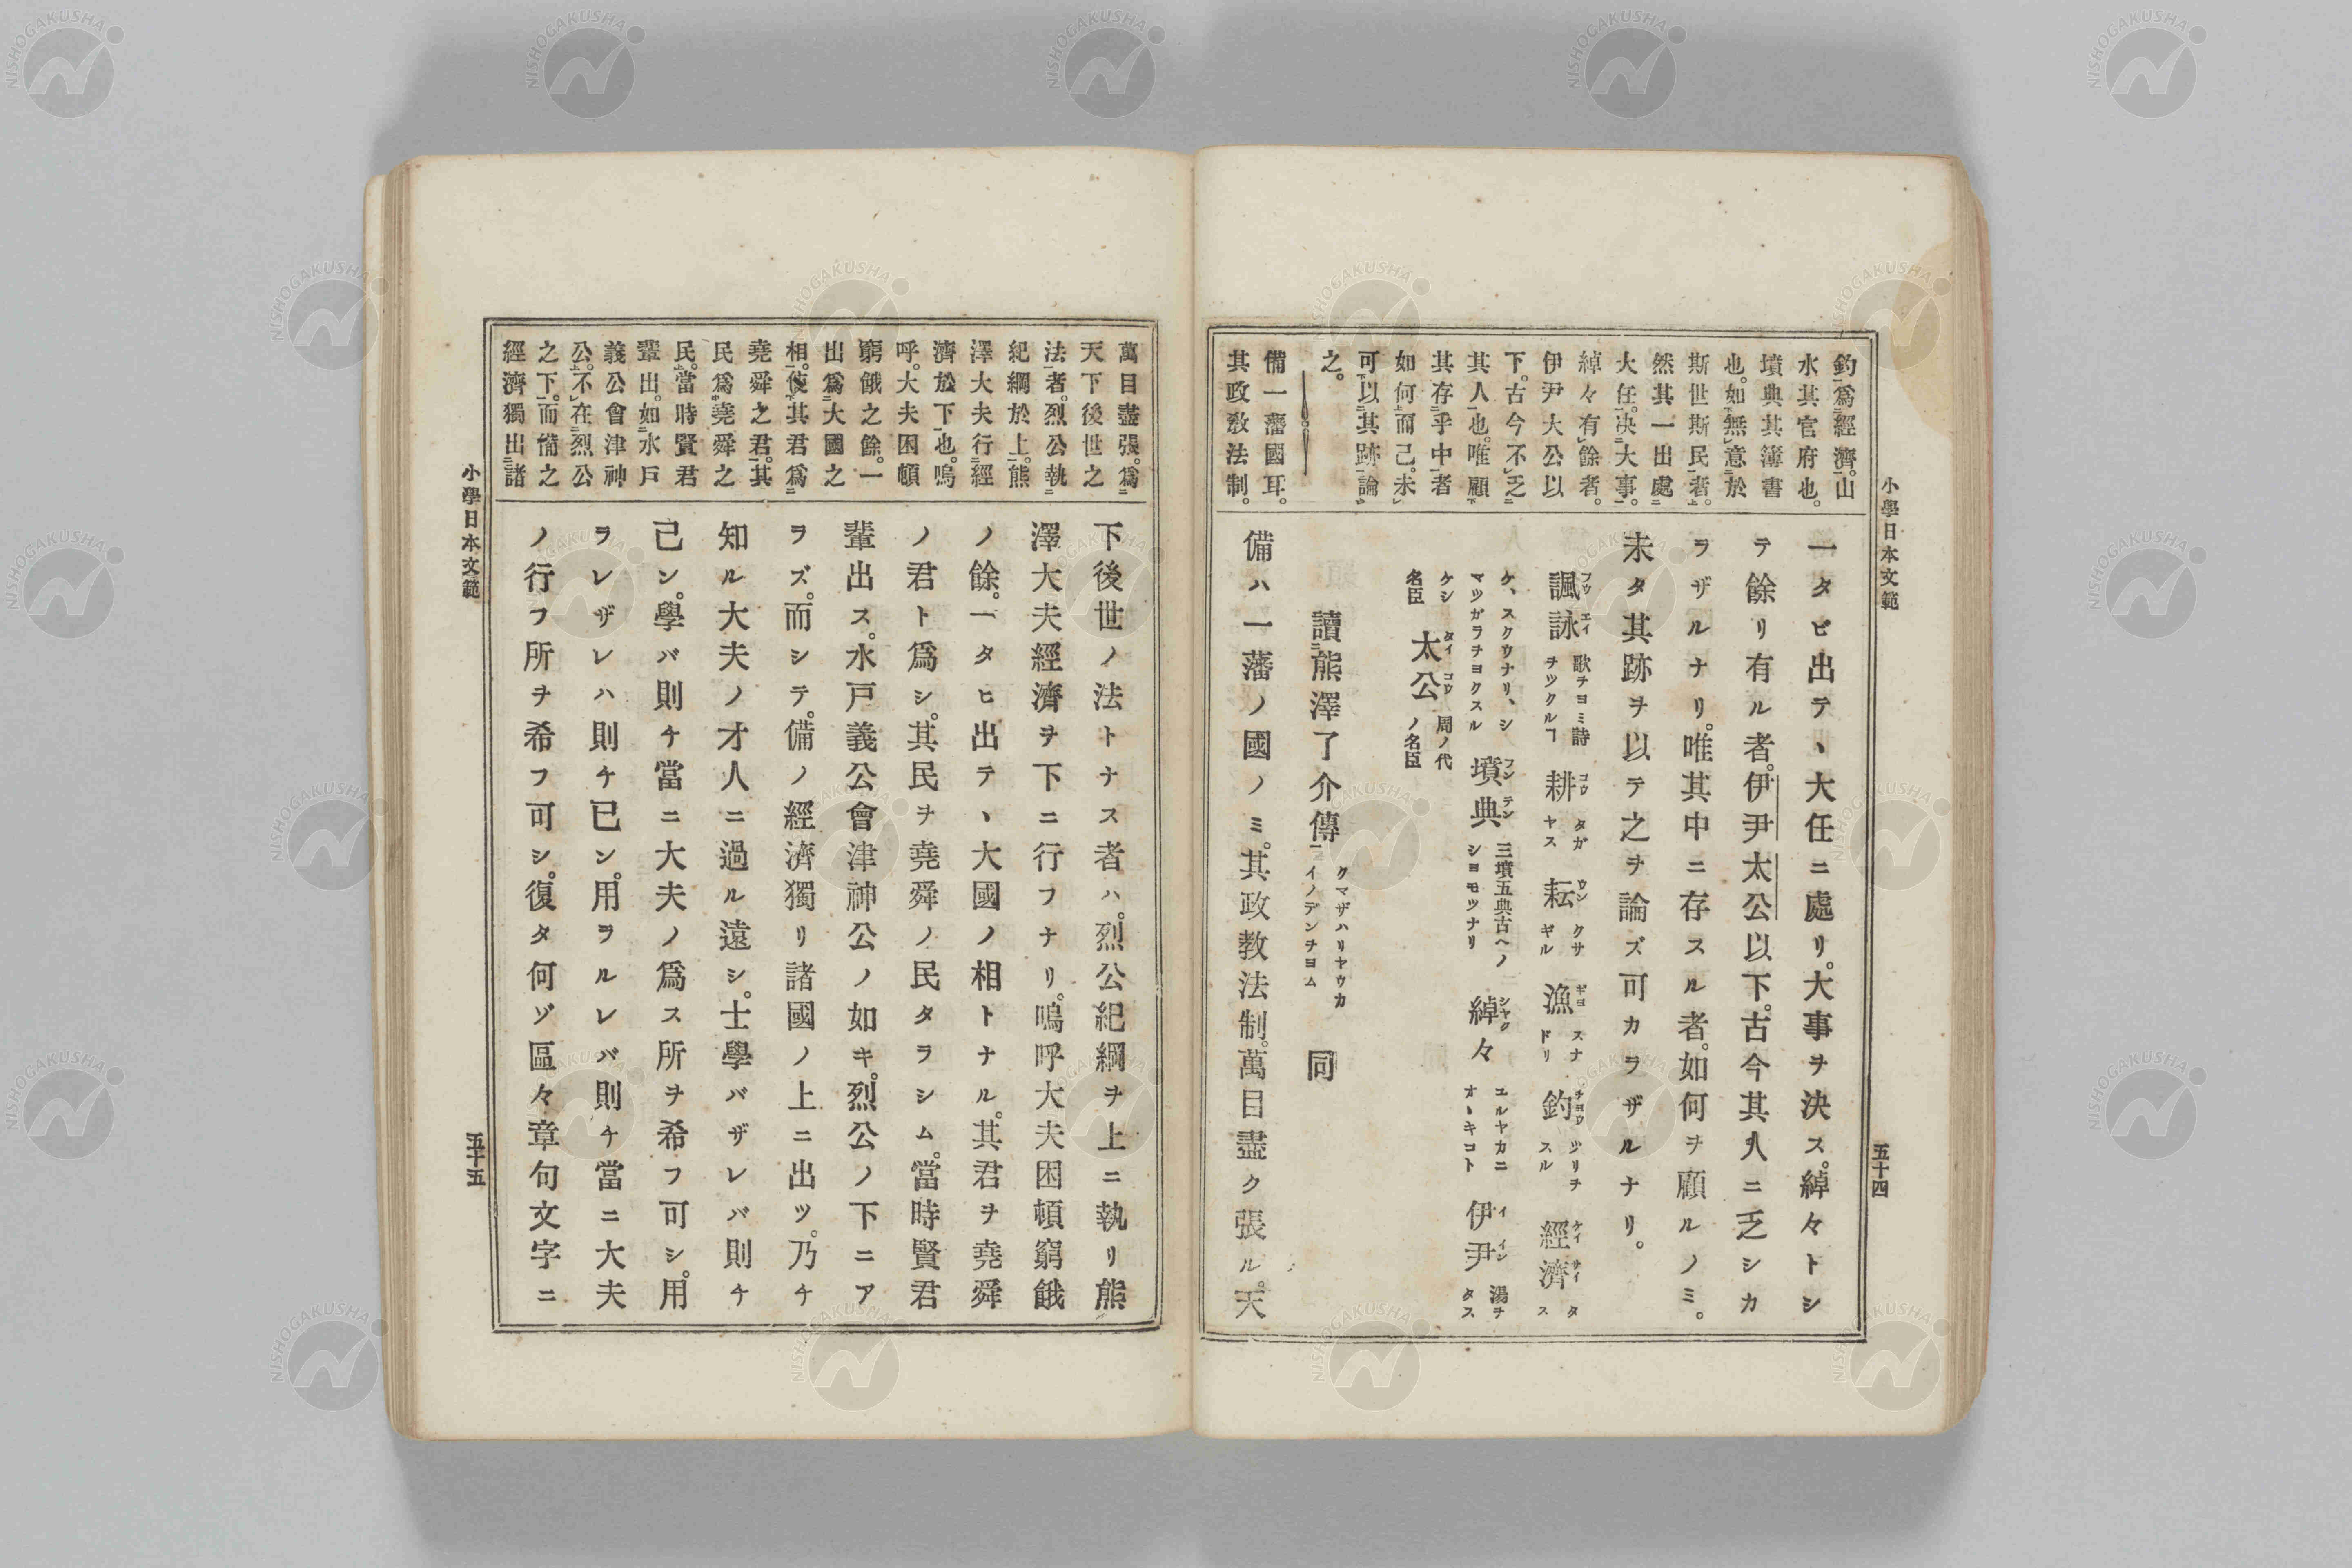 小學日本文範
五十四
釣爲經濟。山
水其官府也。
墳典其簿書
也。如無意於
斯世斯民者。
然其一出處
大任。決大事。
綽々有餘者。
伊尹大公以
下。古今不乏
其人也。唯顧
其存乎中者
如何而己。未
可以其跡論
之。
備一藩國耳。
其政教法制。
一タビ出テヽ大任ニ處リ。大事ヲ決ス。綽々トシ
テ餘リ有ル者。伊尹太公以下。古今其人ニ乏シカ
ラザルナリ。唯其中ニ存スル者。如何ヲ顧ルノミ。
未タ其跡ヲ以テ之ヲ論ズ可カラザルナリ。
諷詠 歌チヨミ詩チツクルヿ 耕 タガヤス 耘 クサギル 漁 スナドリ 釣 ツリチスル 經濟 タス
ケ、スクウナリ、シマツガラチヨクスル 墳典 三墳五典古ヘノシヨモツナリ 綽々 ユルヤカニオヽキコト 伊尹 湯チタス
ケシ名臣 太公 周ノ代ノ名臣
讀熊澤了介傳 クマザハリヤウカイノデンチヨム 同
備ハ一藩ノ國ノミ。其政教法制。萬目盡ク張ル。天
萬目盡張。爲
天下後世之
法者。烈公執
紀綱於上。熊
澤大夫行經
濟於下也。嗚
呼。大夫困頓
窮餓之餘。一
出爲大國之
相。使其君爲
堯舜之君。其
民爲堯舜之
民。當時賢君
輩出。如水戸
義公會津神
公。不在烈公
之下。而備之
經濟獨出諸
下後世ノ法トナス者ハ。烈公紀綱ヲ上ニ執リ熊
澤大夫經濟ヲ下ニ行フナリ。嗚呼大夫困頓窮餓
ノ餘。一タヒ出テヽ大國ノ相トナル。其君ヲ堯舜
ノ君ト爲シ。其民ヲ堯舜ノ民タラシム。當時賢君
輩出ス。水戸義公會津神公ノ如キ。烈公ノ下ニア
ラズ。而シテ。備ノ經濟獨リ諸國ノ上ニ出ツ。乃チ
知ル大夫ノ才人ニ過ル遠シ。士學バザレバ則チ
己ン。學バ則チ當ニ大夫ノ爲ス所ヲ希フ可シ。用
ラレザレハ則ケ已ン。用ラルレバ則ケ當ニ大夫
ノ行フ所ヲ希フ可シ。復タ何ゾ區々章句文字ニ
小學日本文範
五十五